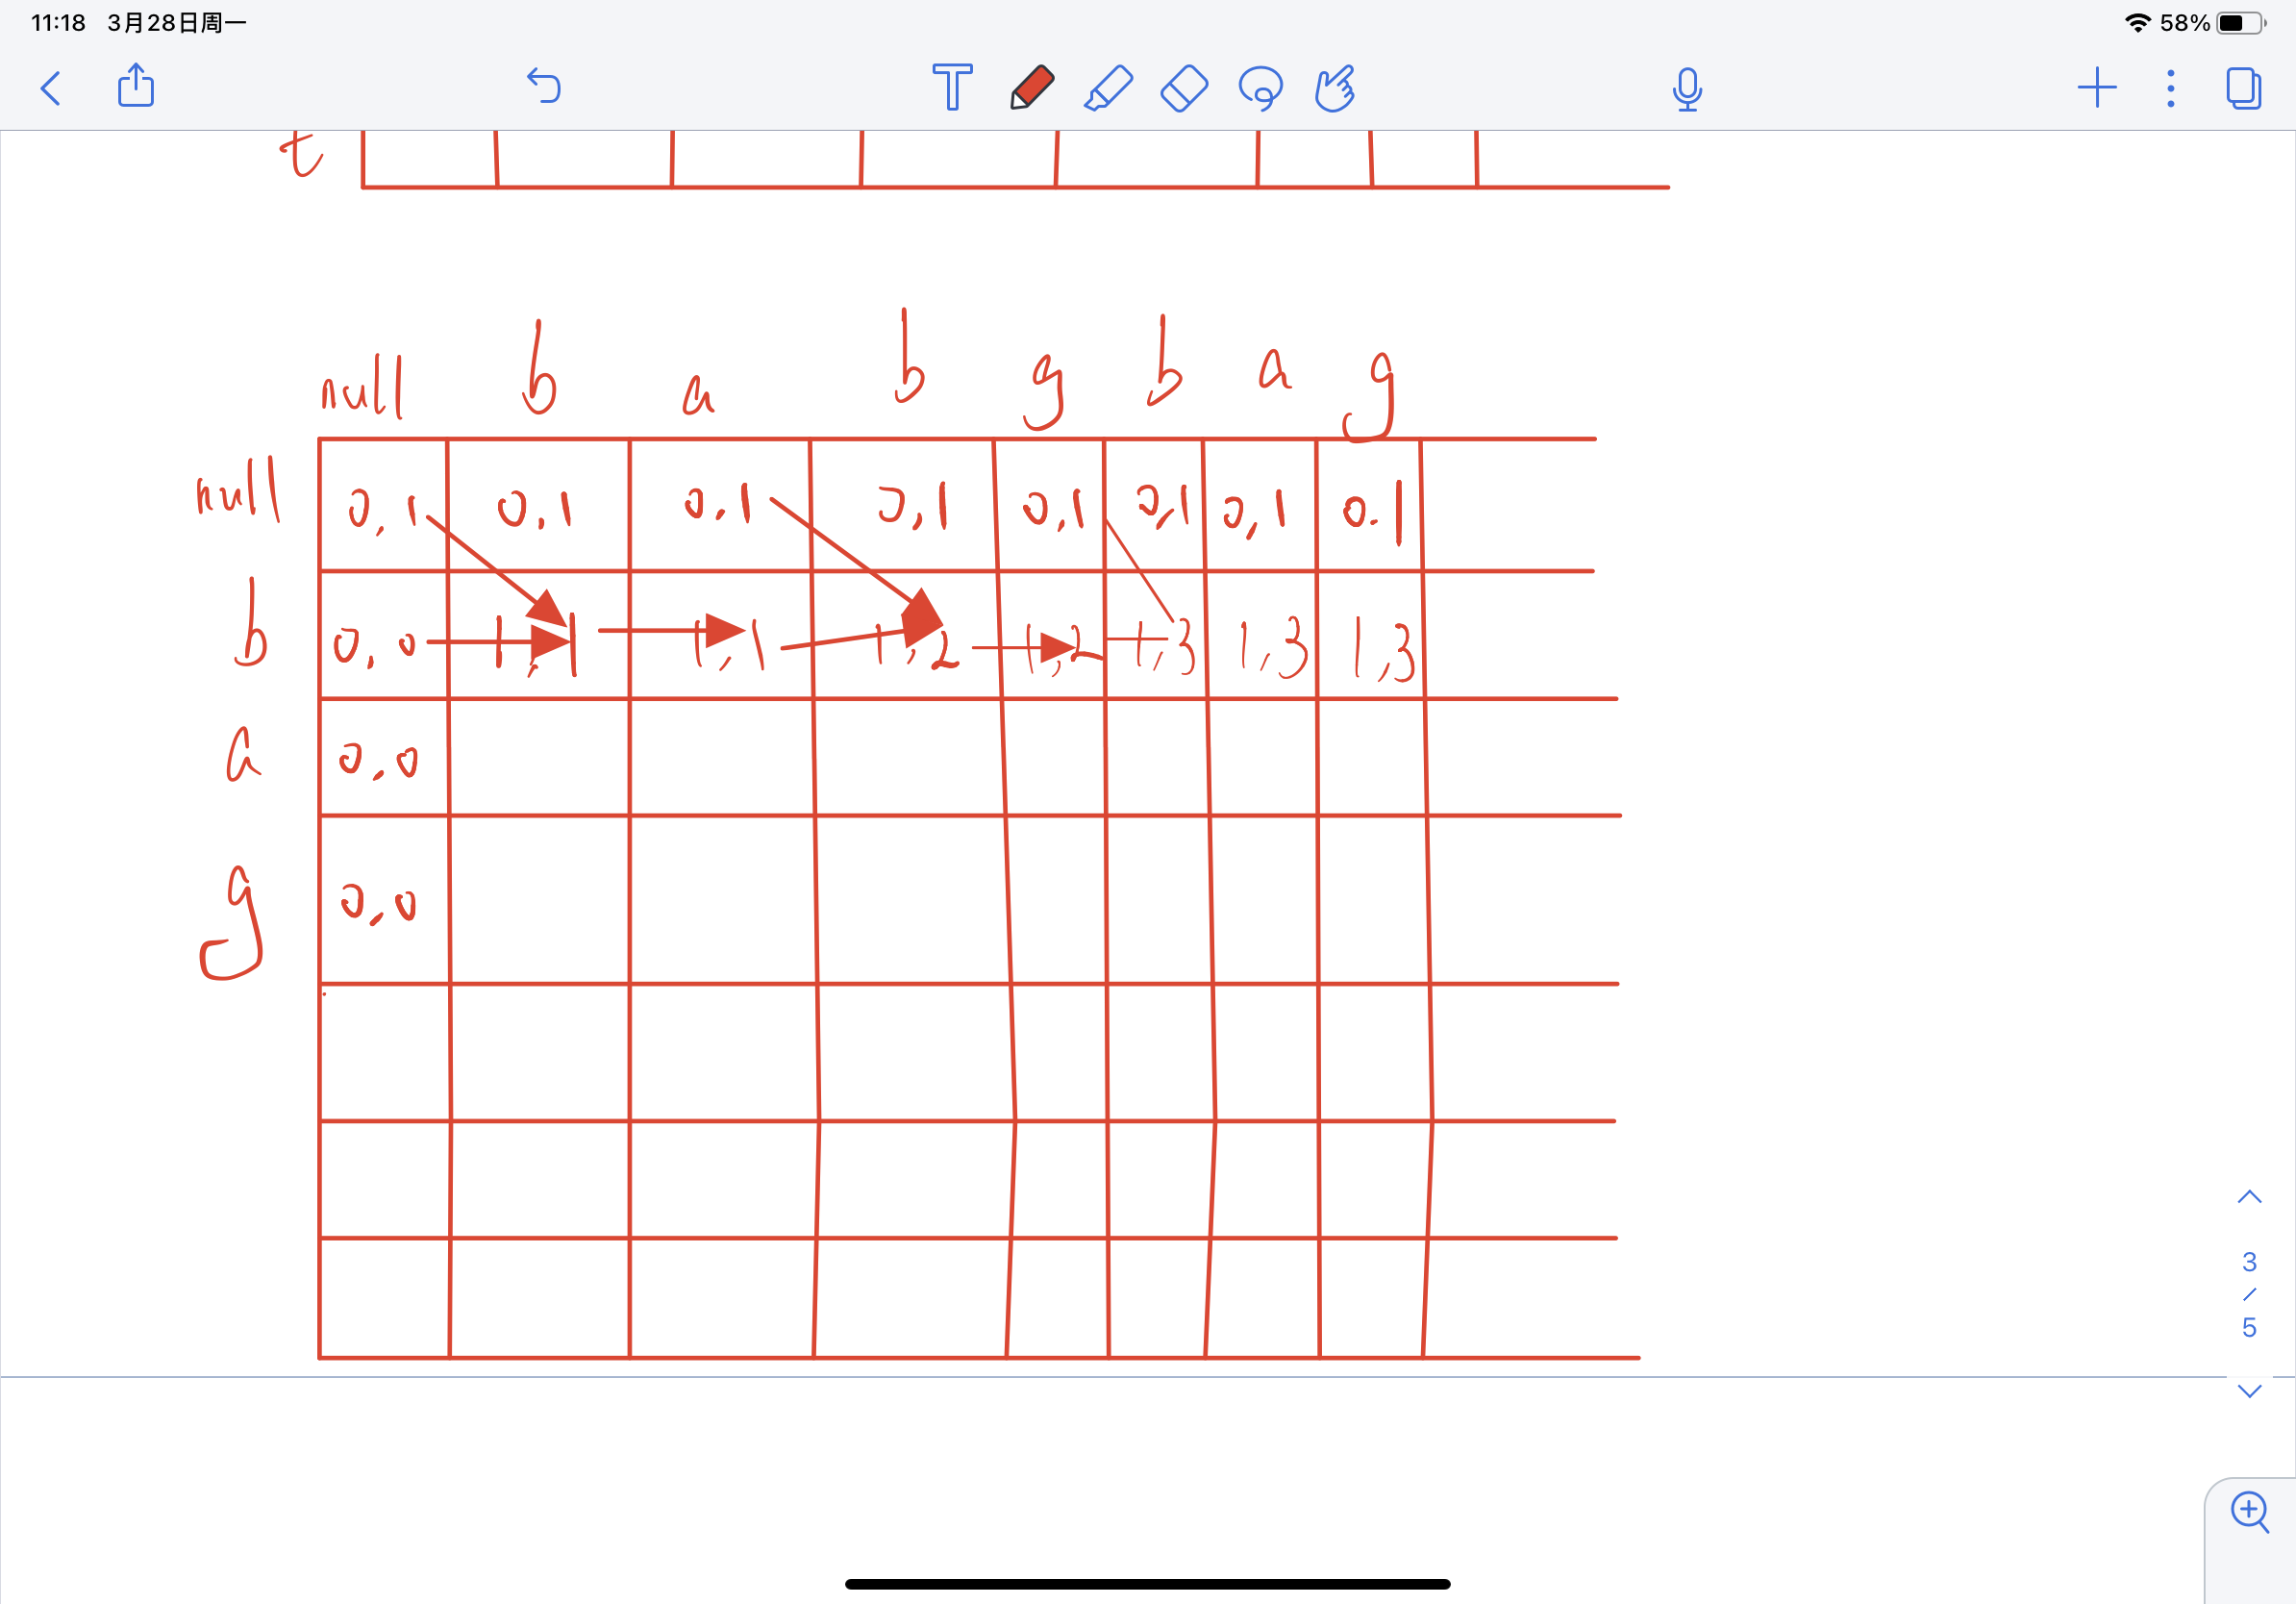 11:18 3月28日周一 58%
t
null b a b g b a g
null 0,1 0,1 0.1 0,1 0,1 0,1 0,1 0.1
b 0,0 1,1 1,1 1,2 1,2 1,3 1,3 1,3
a 0,0
g 0,0
3
/
5